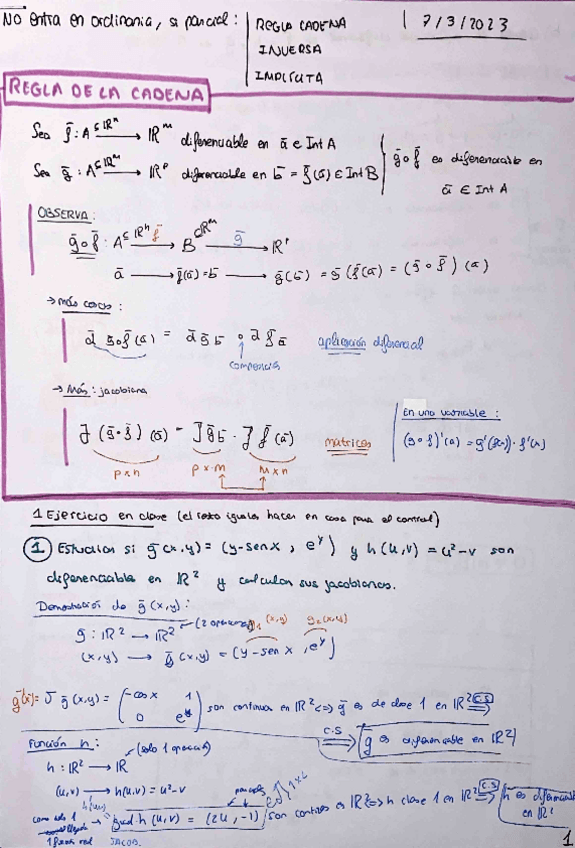 No entra en ordinaria, si parcial: REGLA CADENA
INVERSA
IMPLÍCITA
7/3/2023
REGLA DE LA CADENA
Sea f̄: A ⊆ ℝⁿ → ℝᵐ diferenciable en ā ∈ Int A
Sea ḡ: A ⊆ ℝᵐ → ℝᵖ diferenciable en b̄ = f̄(ā) ∈ Int B
ḡ∘f̄ es diferenciable en
ā ∈ Int A
OBSERVA:
ḡ∘f̄ : A ⊆ ℝⁿ → f̄ B ⊂ ℝᵐ → ḡ ℝᵖ
ā → f̄(ā) = b̄ → ḡ(b̄) = ḡ(f̄(ā)) = (ḡ∘f̄)(ā)
→ más cosas:
d ḡ∘f̄(ā) = d ḡ b̄ ∘ d f̄ ā aplicación diferencial
→ Más: jacobiana
J (ḡ∘f̄)(ā) = J ḡ b̄ · J f̄(ā) matrices
p×n p×m m×n
En una variable:
(g∘f)'(a) = g'(f(a)) · f'(a)
1 Ejercicio en clase (el resto iguales hacer en casa para el control)
1 Estudiar si ḡ(x,y) = (y-senx, eʸ) y h(u,v) = u²-v son
diferenciable en ℝ² y calcular sus jacobianos.
Demostración de ḡ(x,y):
g: ℝ² → ℝ² (2 g₁(x,y) g₂(x,y)
(x,y) → ḡ(x,y) = (y-senx, eʸ)
J ḡ(x,y) = (-cosx 1
0 eʸ) son continuas en ℝ² <=> ḡ es de clase 1 en ℝ² C.S
C.S ⟹ ḡ es diferenciable en ℝ²
Función h: (solo 1
h: ℝ² → ℝ
(u,v) → h(u,v) = u²-v
h(u,v) parciales
como solo 1 → grad h(u,v) = (2u, -1) son continuas en ℝ² <=> h clase 1 en ℝ² C.S ⟹ h es diferenciable
en ℝ²
JACOB.
1